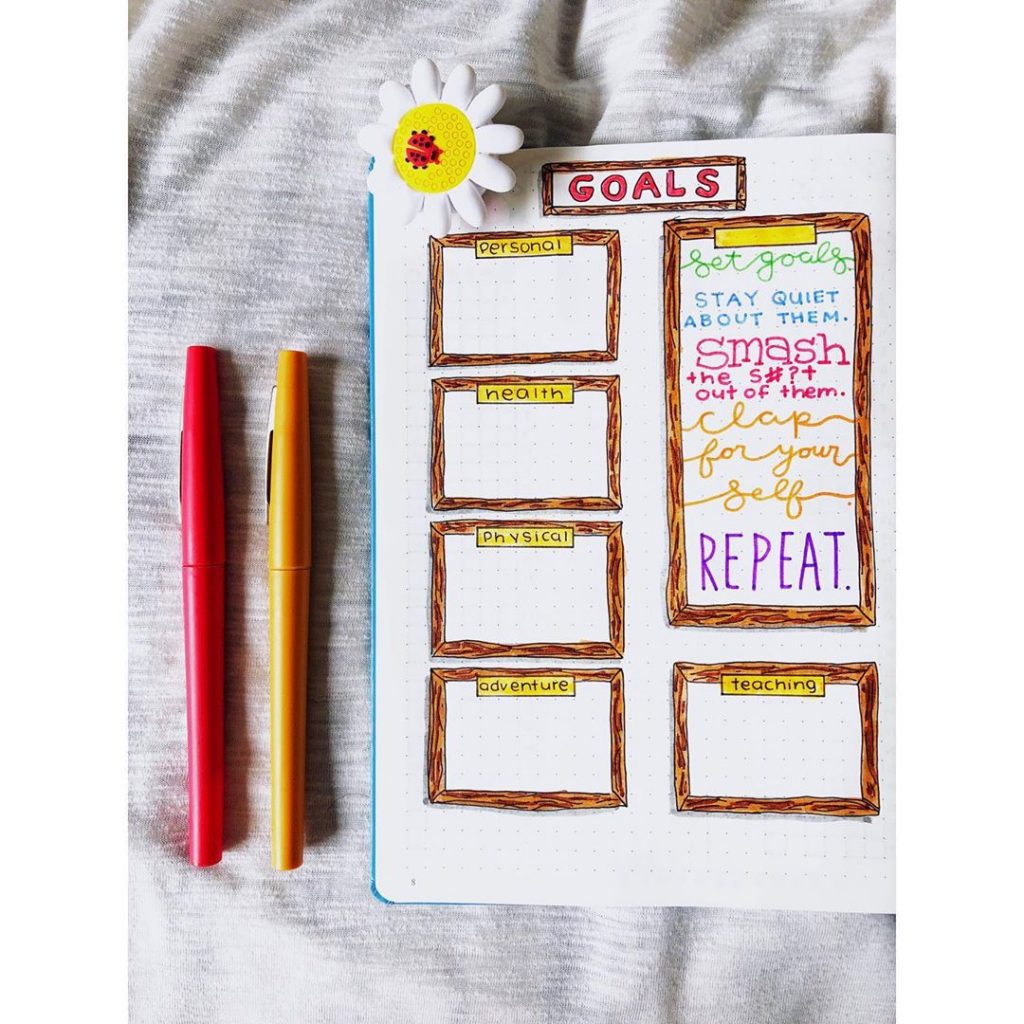 GOALS
personal
health
physical
adventure
set goals.
STAY QUIET
ABOUT THEM.
smash
the s#?t
out of them.
clap
for your
self.
REPEAT.
teaching
8